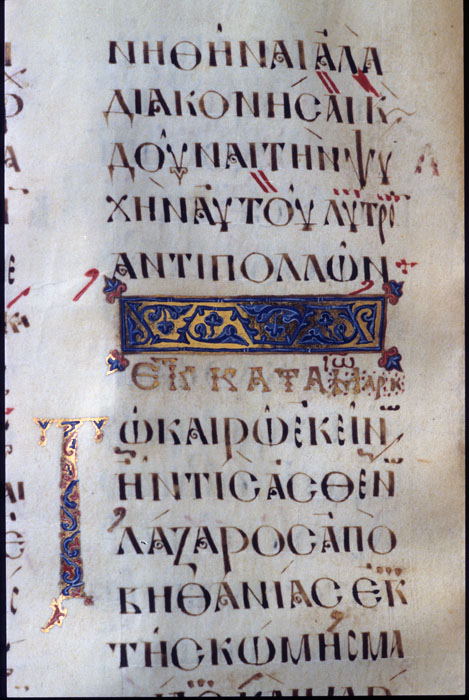 ΝΗΘΗ͂ΝΑΙ ἈΛΛᾺ
ΔΙΑΚΟΝΗ͂ΣΑΙ Κ
ΔΟΥ͂ΝΑΙ ΤῊΝ ΨΥ
ΧῊΝ ΑΥΤΟΥ͂ ΛΎΤΡΟ
ἈΝΤῚ ΠΟΛΛΩ͂Ν
ΚΑΤΑ
Τῼ ΚΑΙΡῼ͂ ἘΚΕΊΝ
ἮΝ ΤΙΣ ἈΣΘΕΝ
ΛΆΖΑΡΟΣ ἈΠῸ
ΒΗΘΑΝΊΑΣ ἘΚ
ΤΗ͂Σ ΚΏΜΗΣ ΜΑ